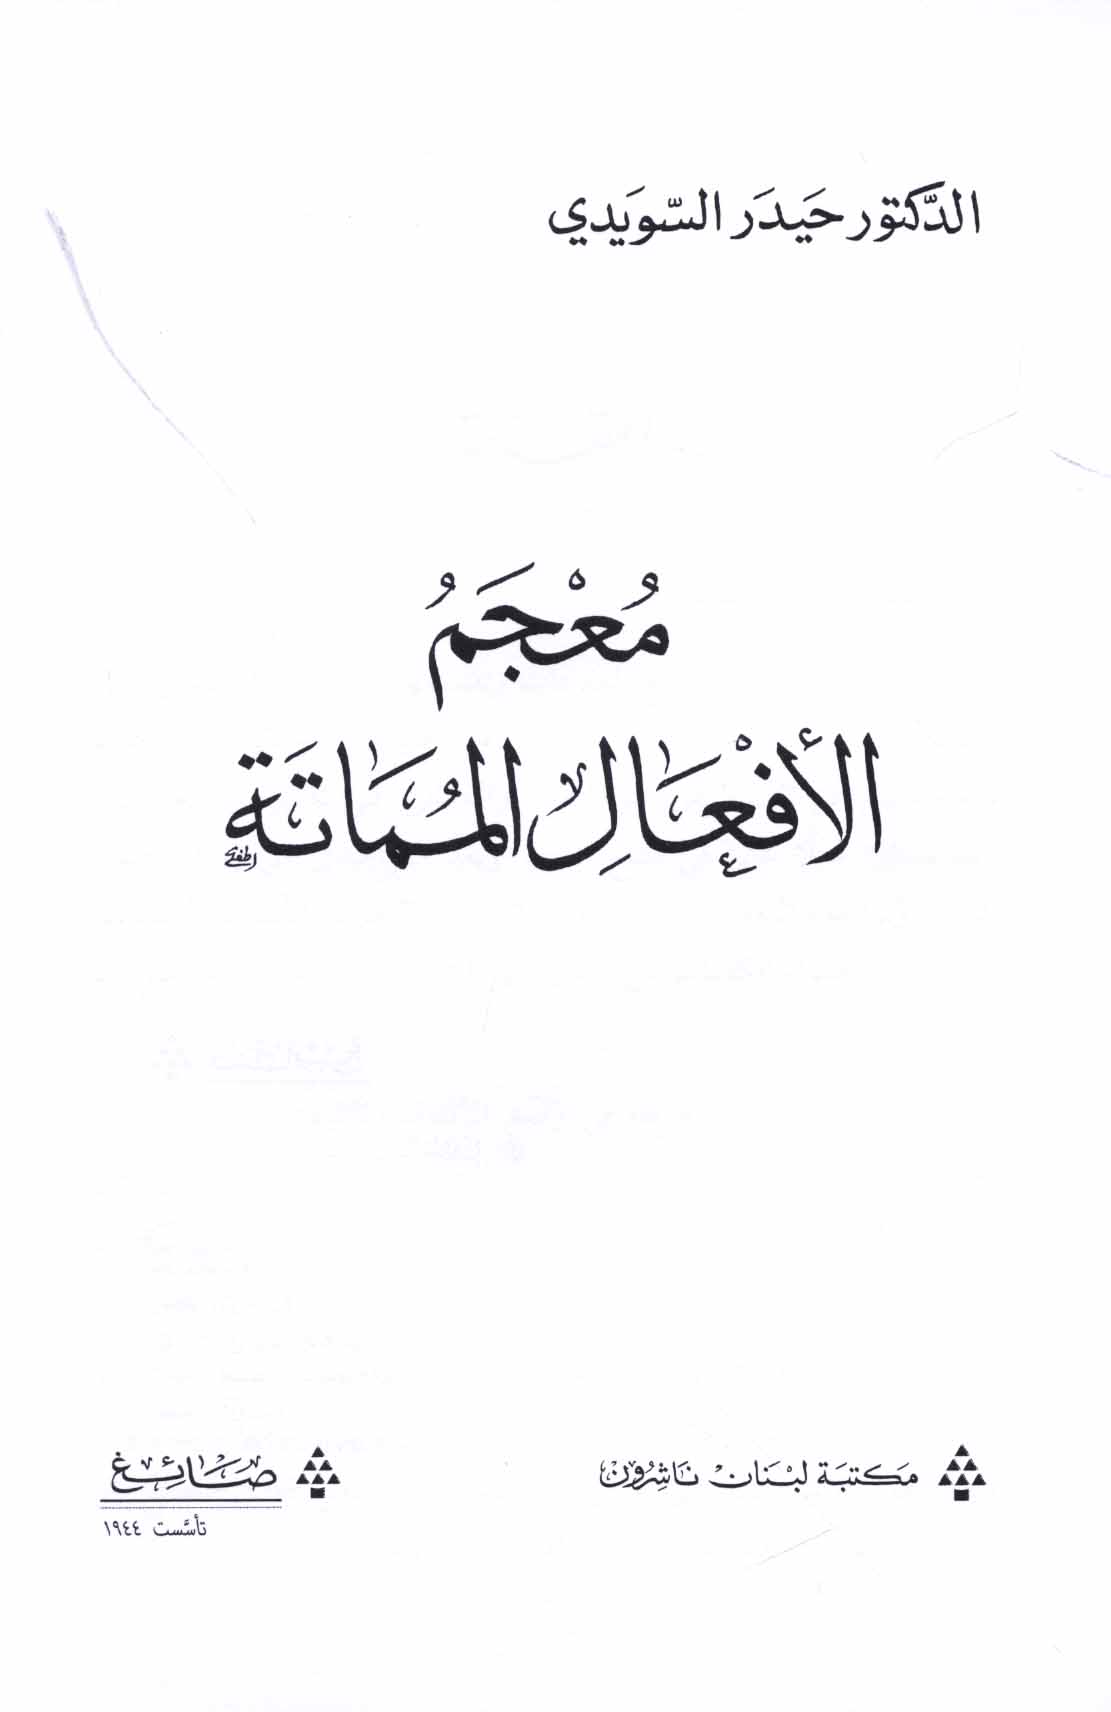 الدَّكتور حَيدَر السّويَدي
مُعْجَمُ
الأَفْعَالِ المُمَاتَة
مَكتبَة لبْنَان نَاشِرُون
صَائِغ
تأسَّست ١٩٤٤